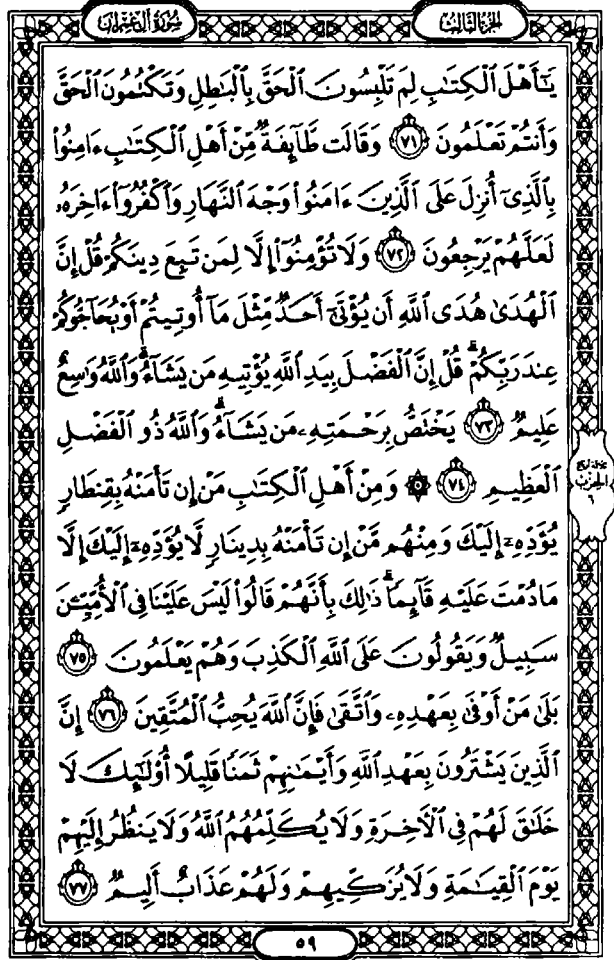 سورة آل عمران
الجزء الثالث
يَـٰٓأَهْلَ ٱلْكِتَـٰبِ لِمَ تَلْبِسُونَ ٱلْحَقَّ بِٱلْبَـٰطِلِ وَتَكْتُمُونَ ٱلْحَقَّ
وَأَنتُمْ تَعْلَمُونَ ٧١ وَقَالَت طَّآئِفَةٌ مِّنْ أَهْلِ ٱلْكِتَـٰبِ ءَامِنُوا۟
بِٱلَّذِىٓ أُنزِلَ عَلَى ٱلَّذِينَ ءَامَنُوا۟ وَجْهَ ٱلنَّهَارِ وَٱكْفُرُوٓا۟ ءَاخِرَهُۥ
لَعَلَّهُمْ يَرْجِعُونَ ٧٢ وَلَا تُؤْمِنُوٓا۟ إِلَّا لِمَن تَبِعَ دِينَكُمْ قُلْ إِنَّ
ٱلْهُدَىٰ هُدَى ٱللَّهِ أَن يُؤْتَىٰٓ أَحَدٌ مِّثْلَ مَآ أُوتِيتُمْ أَوْ يُحَآجُّوكُمْ
عِندَ رَبِّكُمْ ۗ قُلْ إِنَّ ٱلْفَضْلَ بِيَدِ ٱللَّهِ يُؤْتِيهِ مَن يَشَآءُ ۗ وَٱللَّهُ وَٰسِعٌ
عَلِيمٌ ٧٣ يَخْتَصُّ بِرَحْمَتِهِۦ مَن يَشَآءُ ۗ وَٱللَّهُ ذُو ٱلْفَضْلِ
ٱلْعَظِيمِ ٧٤ ۞ وَمِنْ أَهْلِ ٱلْكِتَـٰبِ مَنْ إِن تَأْمَنْهُ بِقِنطَارٍ
يُؤَدِّهِۦٓ إِلَيْكَ وَمِنْهُم مَّنْ إِن تَأْمَنْهُ بِدِينَارٍ لَّا يُؤَدِّهِۦٓ إِلَيْكَ إِلَّا
مَا دُمْتَ عَلَيْهِ قَآئِمًا ۗ ذَٰلِكَ بِأَنَّهُمْ قَالُوا۟ لَيْسَ عَلَيْنَا فِى ٱلْأُمِّيِّـۧنَ
سَبِيلٌ وَيَقُولُونَ عَلَى ٱللَّهِ ٱلْكَذِبَ وَهُمْ يَعْلَمُونَ ٧٥
بَلَىٰ مَنْ أَوْفَىٰ بِعَهْدِهِۦ وَٱتَّقَىٰ فَإِنَّ ٱللَّهَ يُحِبُّ ٱلْمُتَّقِينَ ٧٦ إِنَّ
ٱلَّذِينَ يَشْتَرُونَ بِعَهْدِ ٱللَّهِ وَأَيْمَـٰنِهِمْ ثَمَنًا قَلِيلًا أُو۟لَـٰٓئِكَ لَا
خَلَـٰقَ لَهُمْ فِى ٱلْـَٔاخِرَةِ وَلَا يُكَلِّمُهُمُ ٱللَّهُ وَلَا يَنظُرُ إِلَيْهِمْ
يَوْمَ ٱلْقِيَـٰمَةِ وَلَا يُزَكِّيهِمْ وَلَهُمْ عَذَابٌ أَلِيمٌ ٧٧
الحزب
٦
٥٩